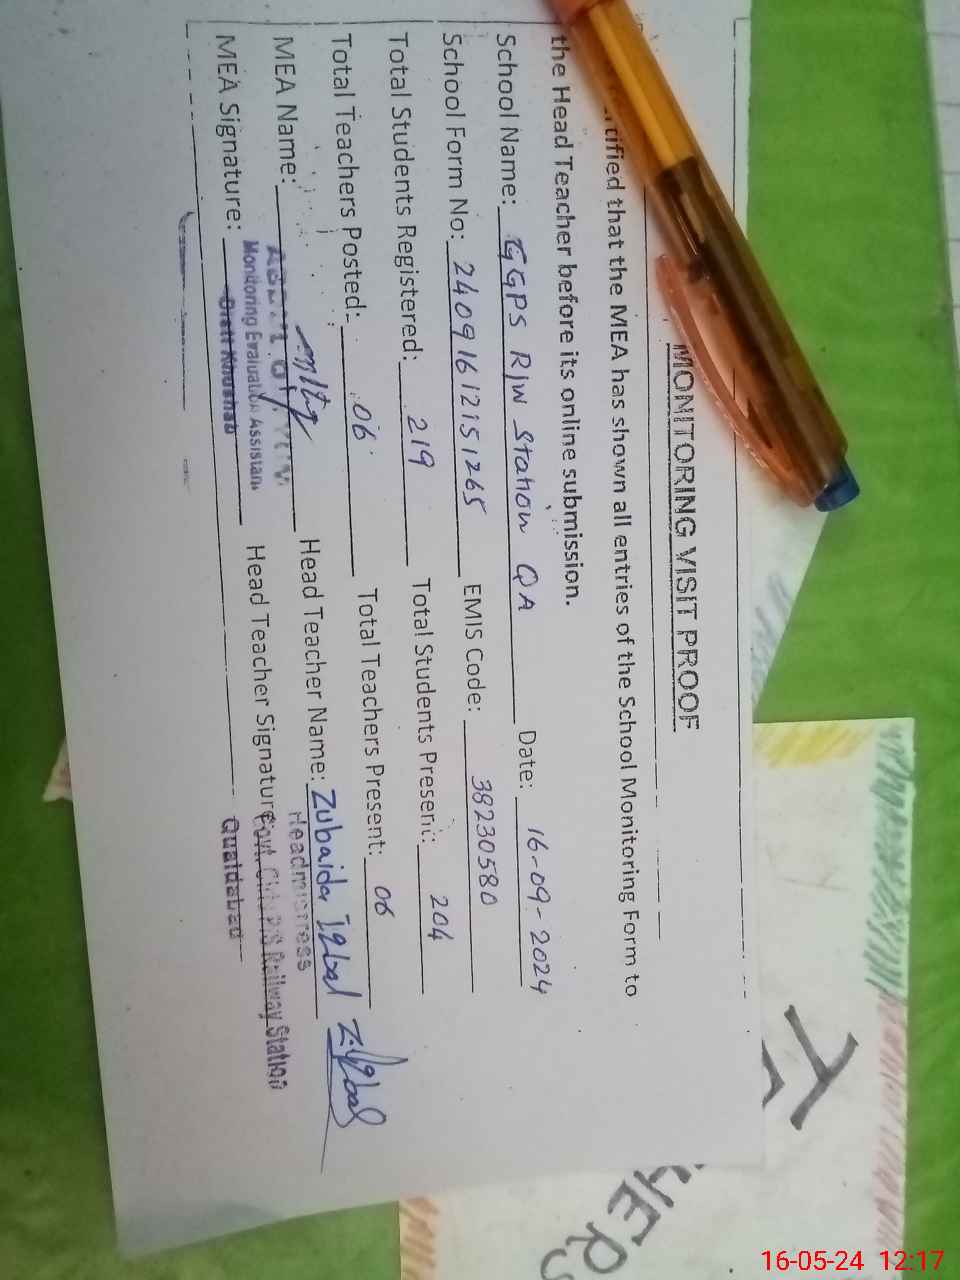 MONITORING VISIT PROOF
rtified that the MEA has shown all entries of the School Monitoring Form to
the Head Teacher before its online submission.
School Name: GGPS R/W Station QA Date: 16-09-2024
School Form No: 24091612151265 EMIS Code: 38230580
Total Students Registered: 219 Total Students Present: 204
Total Teachers Posted: 06 Total Teachers Present: 06
MEA Name: Head Teacher Name: Zubaida Iqbal Z.Iqbal
Monitoring Evaluation Assistant
Distt Khushab
MEA Signature: Head Teacher Signature:
Headmistress
Govt. Girls P/S Railway Station
Quaidabad
16-05-24 12:17